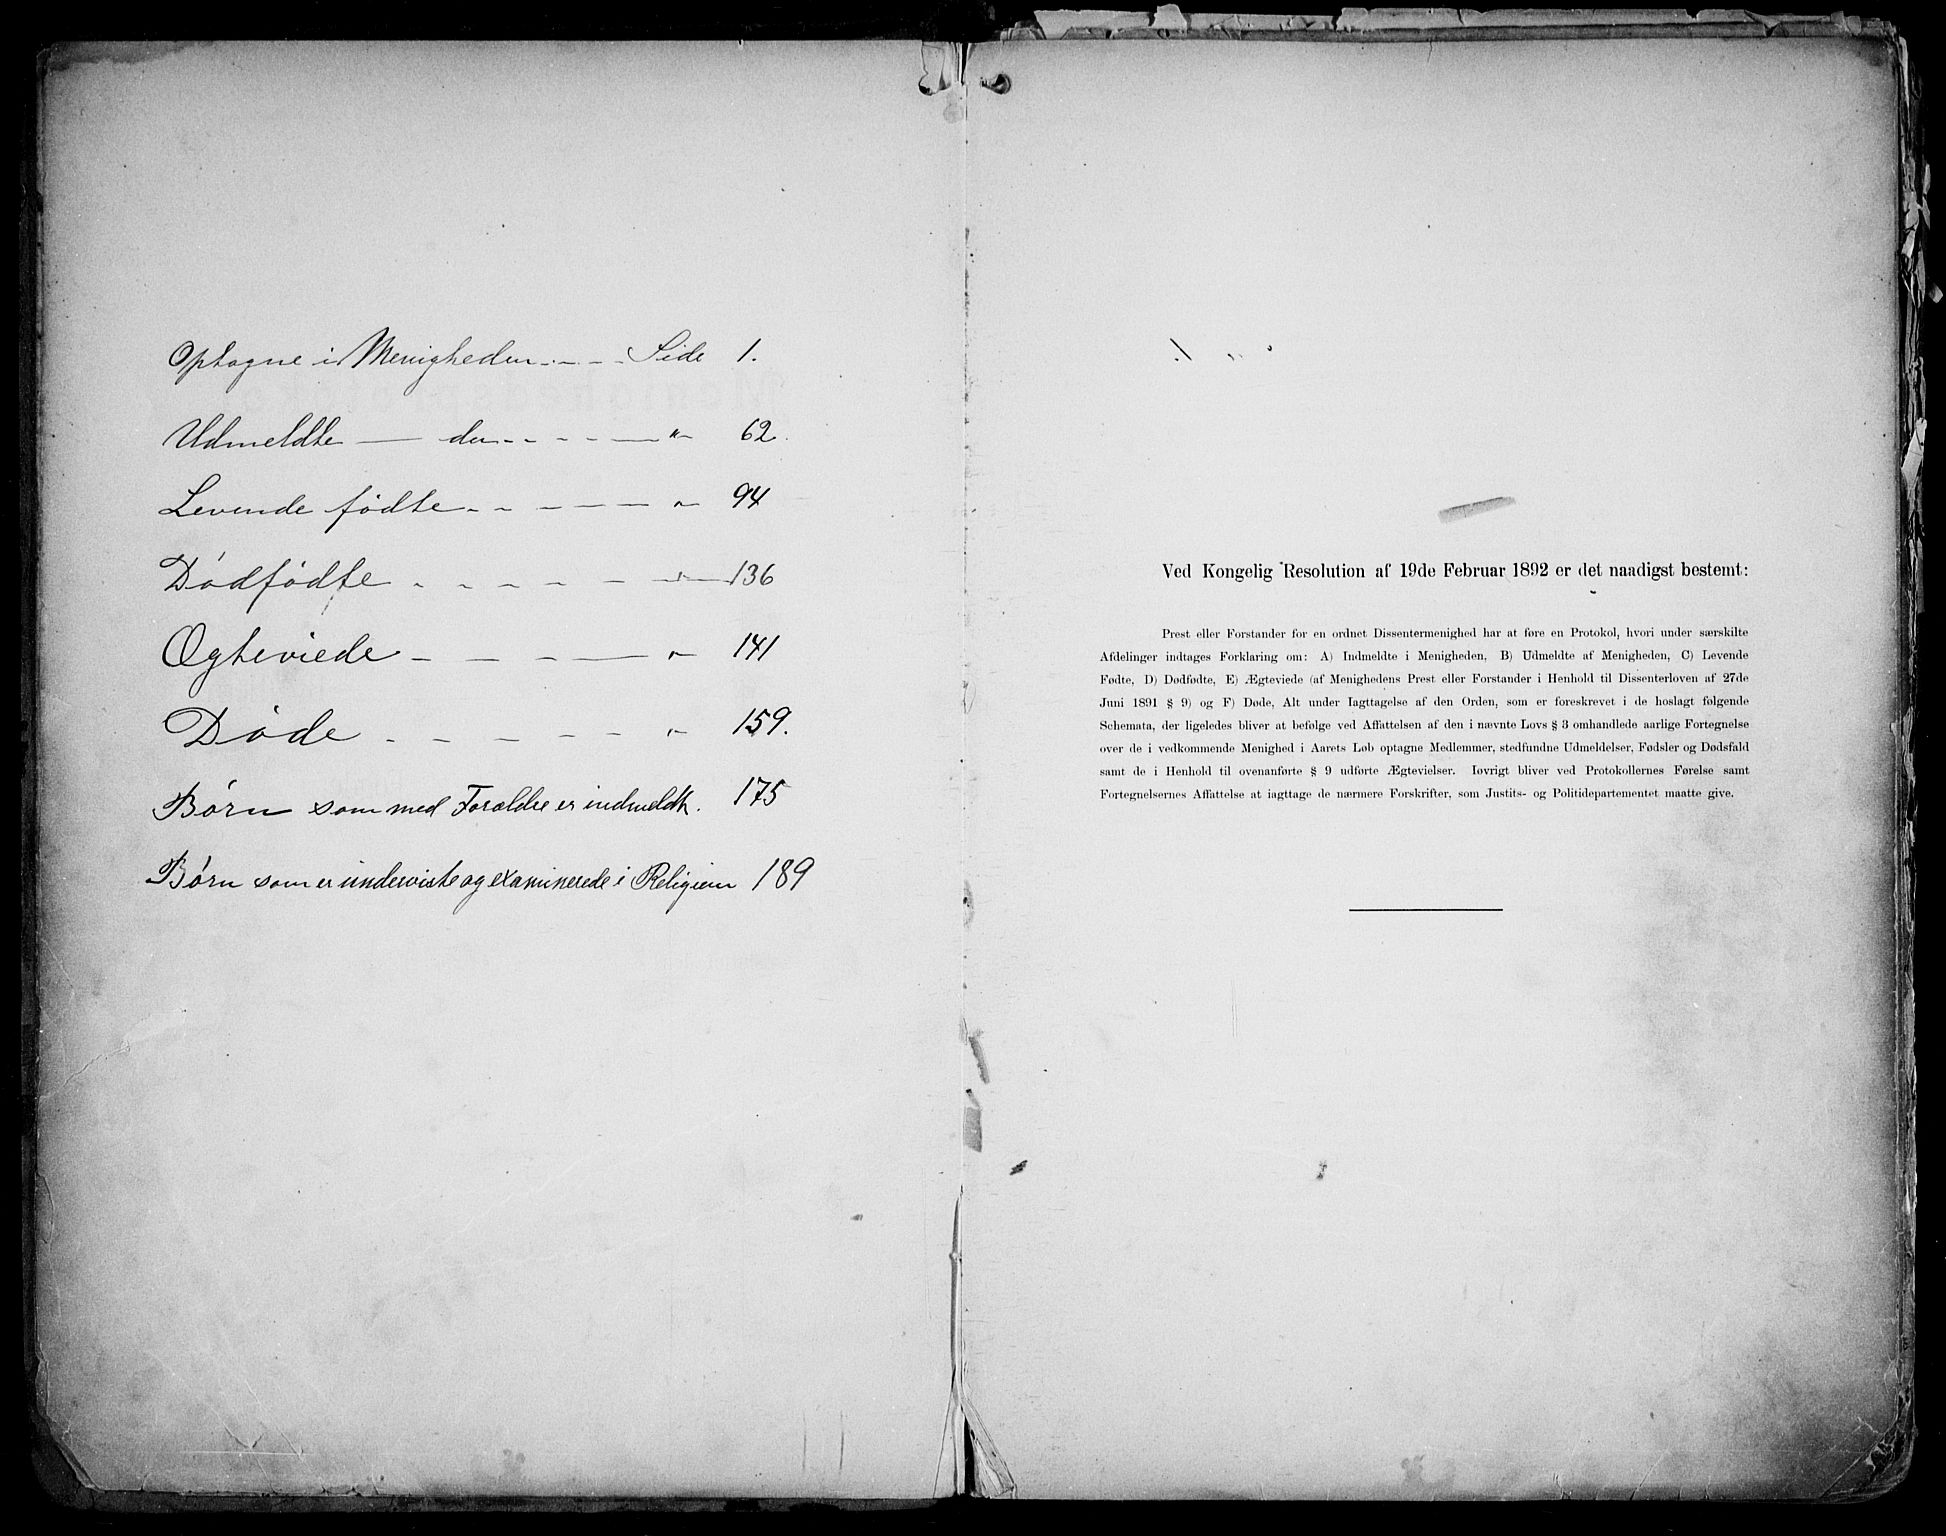 Optagne i Menigheden - - - Side 1.
Udmeldte — den - - - - — " 62.
Levende fødte - - - - - " 94
Dødfødte - - - - - " 136
Ægteviede - - - - " 141
Døde - - - - - - " 159.
Børn som med Forældre er indmeldte. 175
Børn som er underviste og examinerede i Religion 189
Ved Kongelig Resolution af 19de Februar 1892 er det naadigst bestemt:
Prest eller Forstander for en ordnet Dissentermenighed har at føre en Protokol, hvori under særskilte
Afdelinger indtages Forklaring om: A) Indmeldte i Menigheden, B) Udmeldte af Menigheden, C) Levende
Fødte, D) Dødfødte, E) Ægteviede (af Menighedens Prest eller Forstander i Henhold til Dissenterloven af 27de
Juni 1891 § 9) og F) Døde, Alt under Iagttagelse af den Orden, som er foreskrevet i de hoslagt følgende
Schemata, der ligeledes bliver at befølge ved Affattelsen af den i nævnte Lovs § 3 omhandlede aarlige Fortegnelse
over de i vedkommende Menighed i Aarets Løb optagne Medlemmer, stedfundne Udmeldelser, Fødsler og Dødsfald
samt de i Henhold til ovenanførte § 9 udførte Ægtevielser. Iøvrigt bliver ved Protokollernes Førelse samt
Fortegnelsernes Affattelse at iagttage de nærmere Forskrifter, som Justits- og Politidepartementet maatte give.